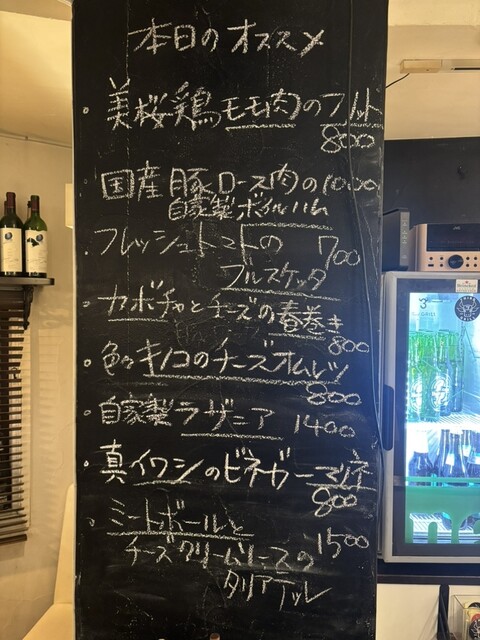 本日のオススメ
美桜鶏モモ肉のフリット
800
国産豚ロース肉の1000
自家製ボイルハム
フレッシュトマトの 700
ブルスケッタ
カボチャとチーズの春巻き
800
色々キノコのチーズオムレツ
800
自家製ラザニア 1400
真イワシのビネガーマリネ
800
ミートボールと
チーズクリームソースの 1500
タリアテッレ
JVC